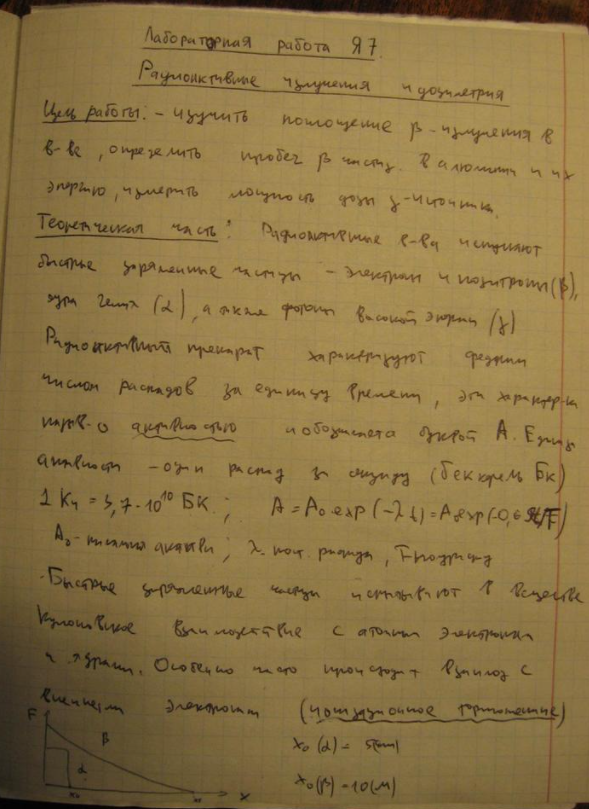 Лабораторная работа Я7.
Радиоактивные излучения и дозиметрия
Цель работы: - изучить поглощение β-излучения в
в-ве, определить пробег β частиц в алюминии и их
энергию, измерить мощность дозы γ-источника.
Теоретическая часть: Радиоактивные в-ва испускают
быстрые заряженные частицы - электроны и позитроны (β),
ядра гелия (α), а также фотоны высокой энергии (γ)
Радиоактивный препарат характеризуют средним
числом распадов за единицу времени, эта характер-ка
назыв-ся активностью и обозначается буквой A. Единица
активности - один распад за секунду (беккерель Бк)
1 Ки = 3,7·10¹⁰ БК.; A = A₀ exp(-λt) = A₀ exp(-0,6 t/T)
A₀ - ; λ - пост. распада, T
-Быстрые заряженные частицы испытывают в веществе
Кулоновское взаимодействие с атомными электронами
и ядрами. Особенно часто происходит взаимод с
внешними электронами (ионизационное торможение)
F β α x₀ x
x₀(α) = 5(см)
x₀(β) = 10(м)